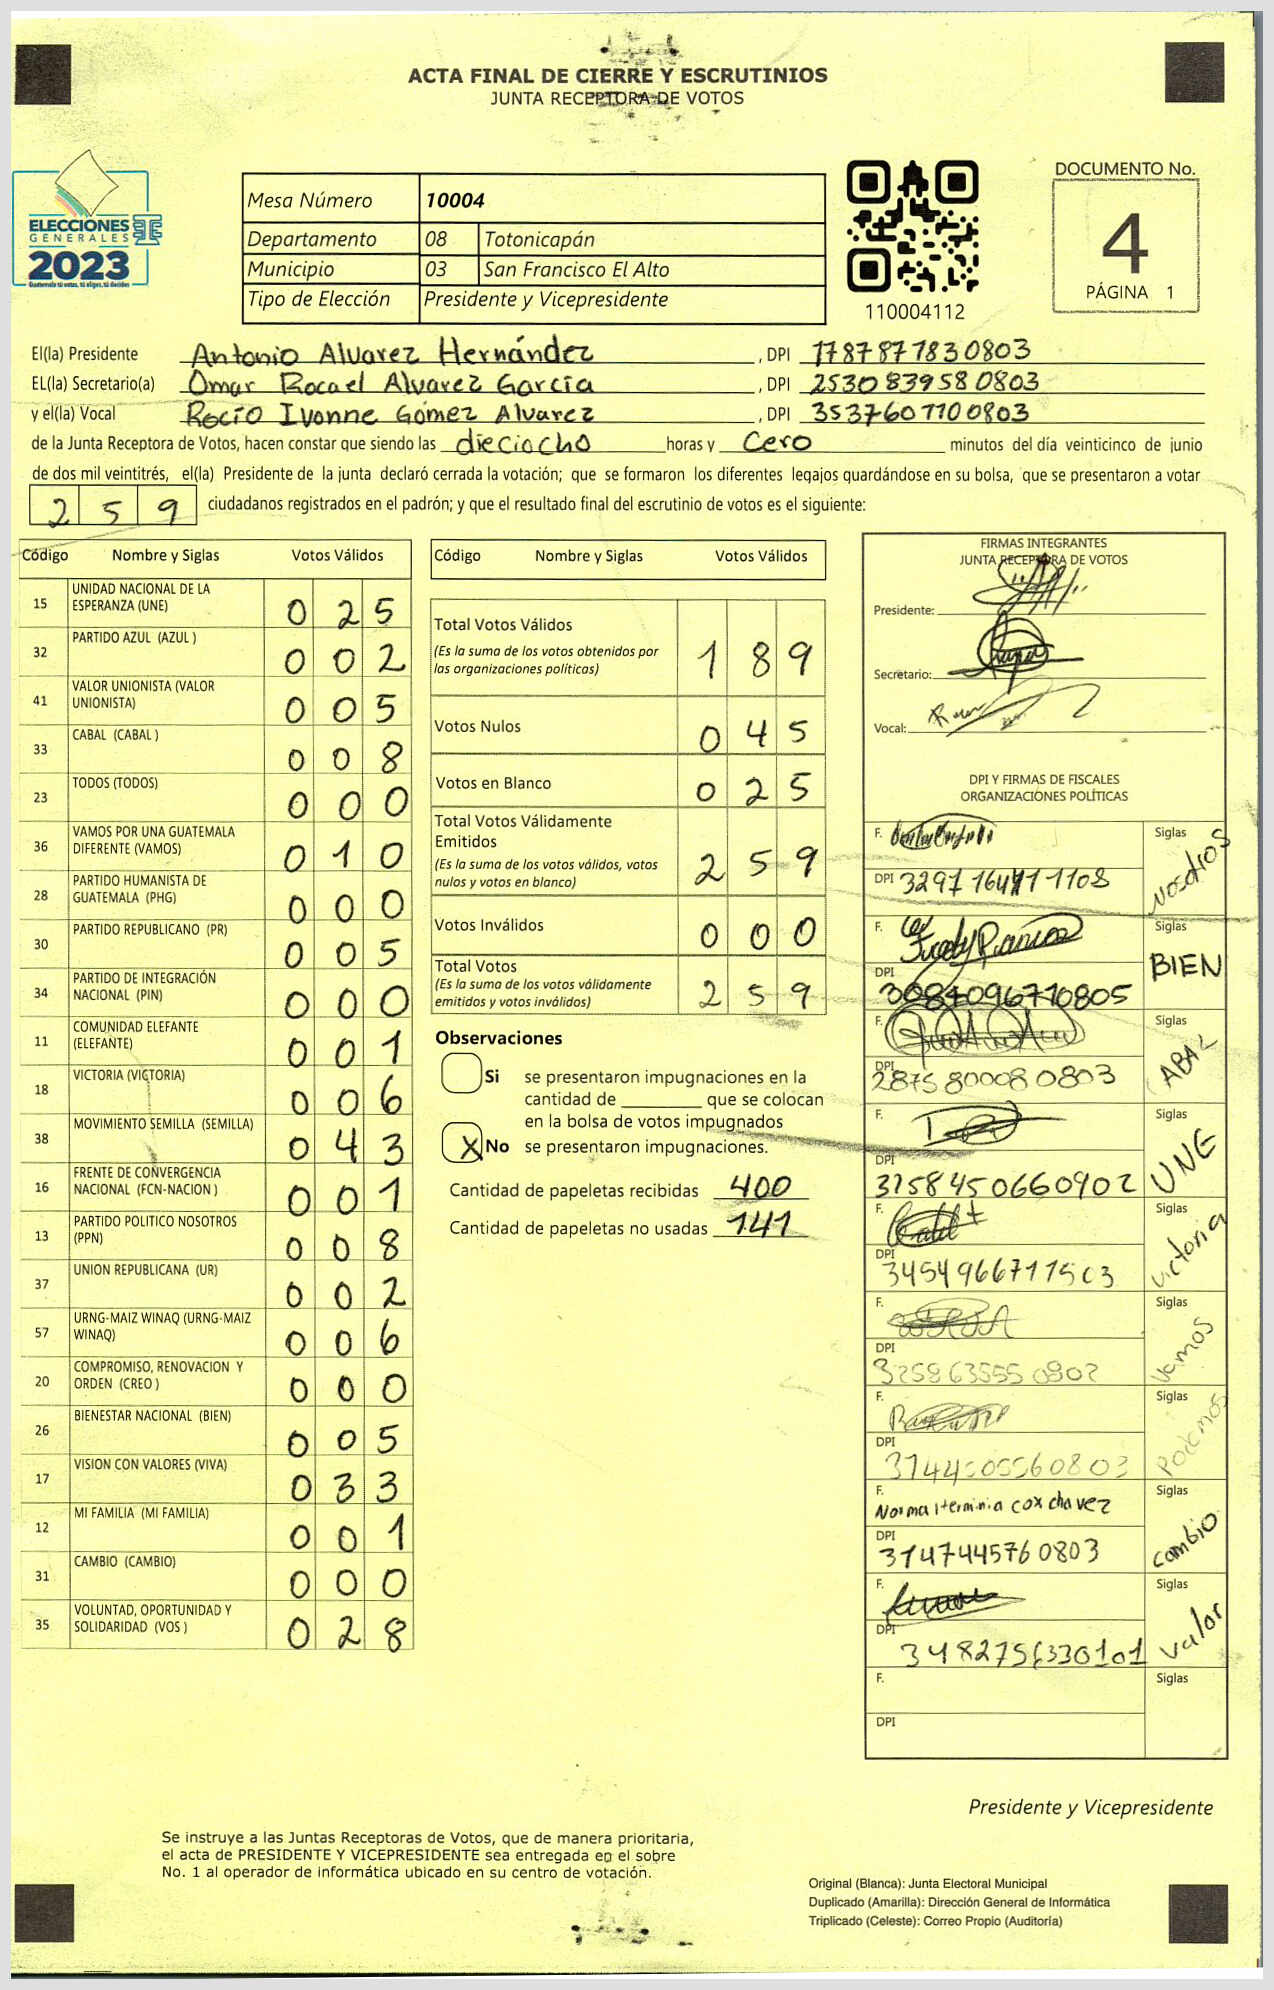 ACTA FINAL DE CIERRE Y ESCRUTINIOS
JUNTA RECEPTORA DE VOTOS
ELECCIONES
GENERALES
2023
Guatemala tú votas, tú eliges, tú decides
Mesa Número 10004
Departamento 08 Totonicapán
Municipio 03 San Francisco El Alto
Tipo de Elección Presidente y Vicepresidente
110004112
DOCUMENTO No.
4
PÁGINA 1
El(la) Presidente Antonio Alvarez Hernández, DPI 1787877830803
EL(la) Secretario(a) Omar Rocael Alvarez García, DPI 2530839580803
y el(la) Vocal Rocío Ivonne Gómez Alvarez, DPI 3537601100803
de la Junta Receptora de Votos, hacen constar que siendo las dieciocho horas y cero minutos del día veinticinco de junio
de dos mil veintitrés, el(la) Presidente de la junta declaró cerrada la votación; que se formaron los diferentes legajos guardándose en su bolsa, que se presentaron a votar
259 ciudadanos registrados en el padrón; y que el resultado final del escrutinio de votos es el siguiente:
Código Nombre y Siglas Votos Válidos
15 UNIDAD NACIONAL DE LA ESPERANZA (UNE) 025
32 PARTIDO AZUL (AZUL ) 002
41 VALOR UNIONISTA (VALOR UNIONISTA) 005
33 CABAL (CABAL ) 008
23 TODOS (TODOS) 000
36 VAMOS POR UNA GUATEMALA DIFERENTE (VAMOS) 010
28 PARTIDO HUMANISTA DE GUATEMALA (PHG) 000
30 PARTIDO REPUBLICANO (PR) 005
34 PARTIDO DE INTEGRACIÓN NACIONAL (PIN) 000
11 COMUNIDAD ELEFANTE (ELEFANTE) 001
18 VICTORIA (VICTORIA) 006
38 MOVIMIENTO SEMILLA (SEMILLA) 043
16 FRENTE DE CONVERGENCIA NACIONAL (FCN-NACION ) 001
13 PARTIDO POLITICO NOSOTROS (PPN) 008
37 UNION REPUBLICANA (UR) 002
57 URNG-MAIZ WINAQ (URNG-MAIZ WINAQ) 006
20 COMPROMISO, RENOVACION Y ORDEN (CREO ) 000
26 BIENESTAR NACIONAL (BIEN) 005
17 VISION CON VALORES (VIVA) 033
12 MI FAMILIA (MI FAMILIA) 001
31 CAMBIO (CAMBIO) 000
35 VOLUNTAD, OPORTUNIDAD Y SOLIDARIDAD (VOS ) 028
Código Nombre y Siglas Votos Válidos
Total Votos Válidos
(Es la suma de los votos obtenidos por
las organizaciones políticas) 189
Votos Nulos 045
Votos en Blanco 025
Total Votos Válidamente
Emitidos
(Es la suma de los votos válidos, votos
nulos y votos en blanco) 259
Votos Inválidos 000
Total Votos
(Es la suma de los votos válidamente
emitidos y votos inválidos) 259
Observaciones
Si se presentaron impugnaciones en la
cantidad de ________ que se colocan
en la bolsa de votos impugnados
X No se presentaron impugnaciones.
Cantidad de papeletas recibidas 400
Cantidad de papeletas no usadas 141
FIRMAS INTEGRANTES
JUNTA RECEPTORA DE VOTOS
Presidente:
Secretario:
Vocal:
DPI Y FIRMAS DE FISCALES
ORGANIZACIONES POLÍTICAS
F. Siglas Nosotros
DPI
F. Siglas BIEN
DPI 3084096710805
F. Siglas
DPI 2875800080803
F. Siglas UNE
DPI 3758450660902
F. Siglas Victoria
DPI
F. Siglas Vamos
DPI
F. Siglas Podemos
DPI
F. Siglas cambio
DPI 3147445760803
F. Siglas Valor
DPI
F. Siglas
DPI
Presidente y Vicepresidente
Se instruye a las Juntas Receptoras de Votos, que de manera prioritaria,
el acta de PRESIDENTE Y VICEPRESIDENTE sea entregada en el sobre
No. 1 al operador de informática ubicado en su centro de votación.
Original (Blanca): Junta Electoral Municipal
Duplicado (Amarilla): Dirección General de Informática
Triplicado (Celeste): Correo Propio (Auditoría)